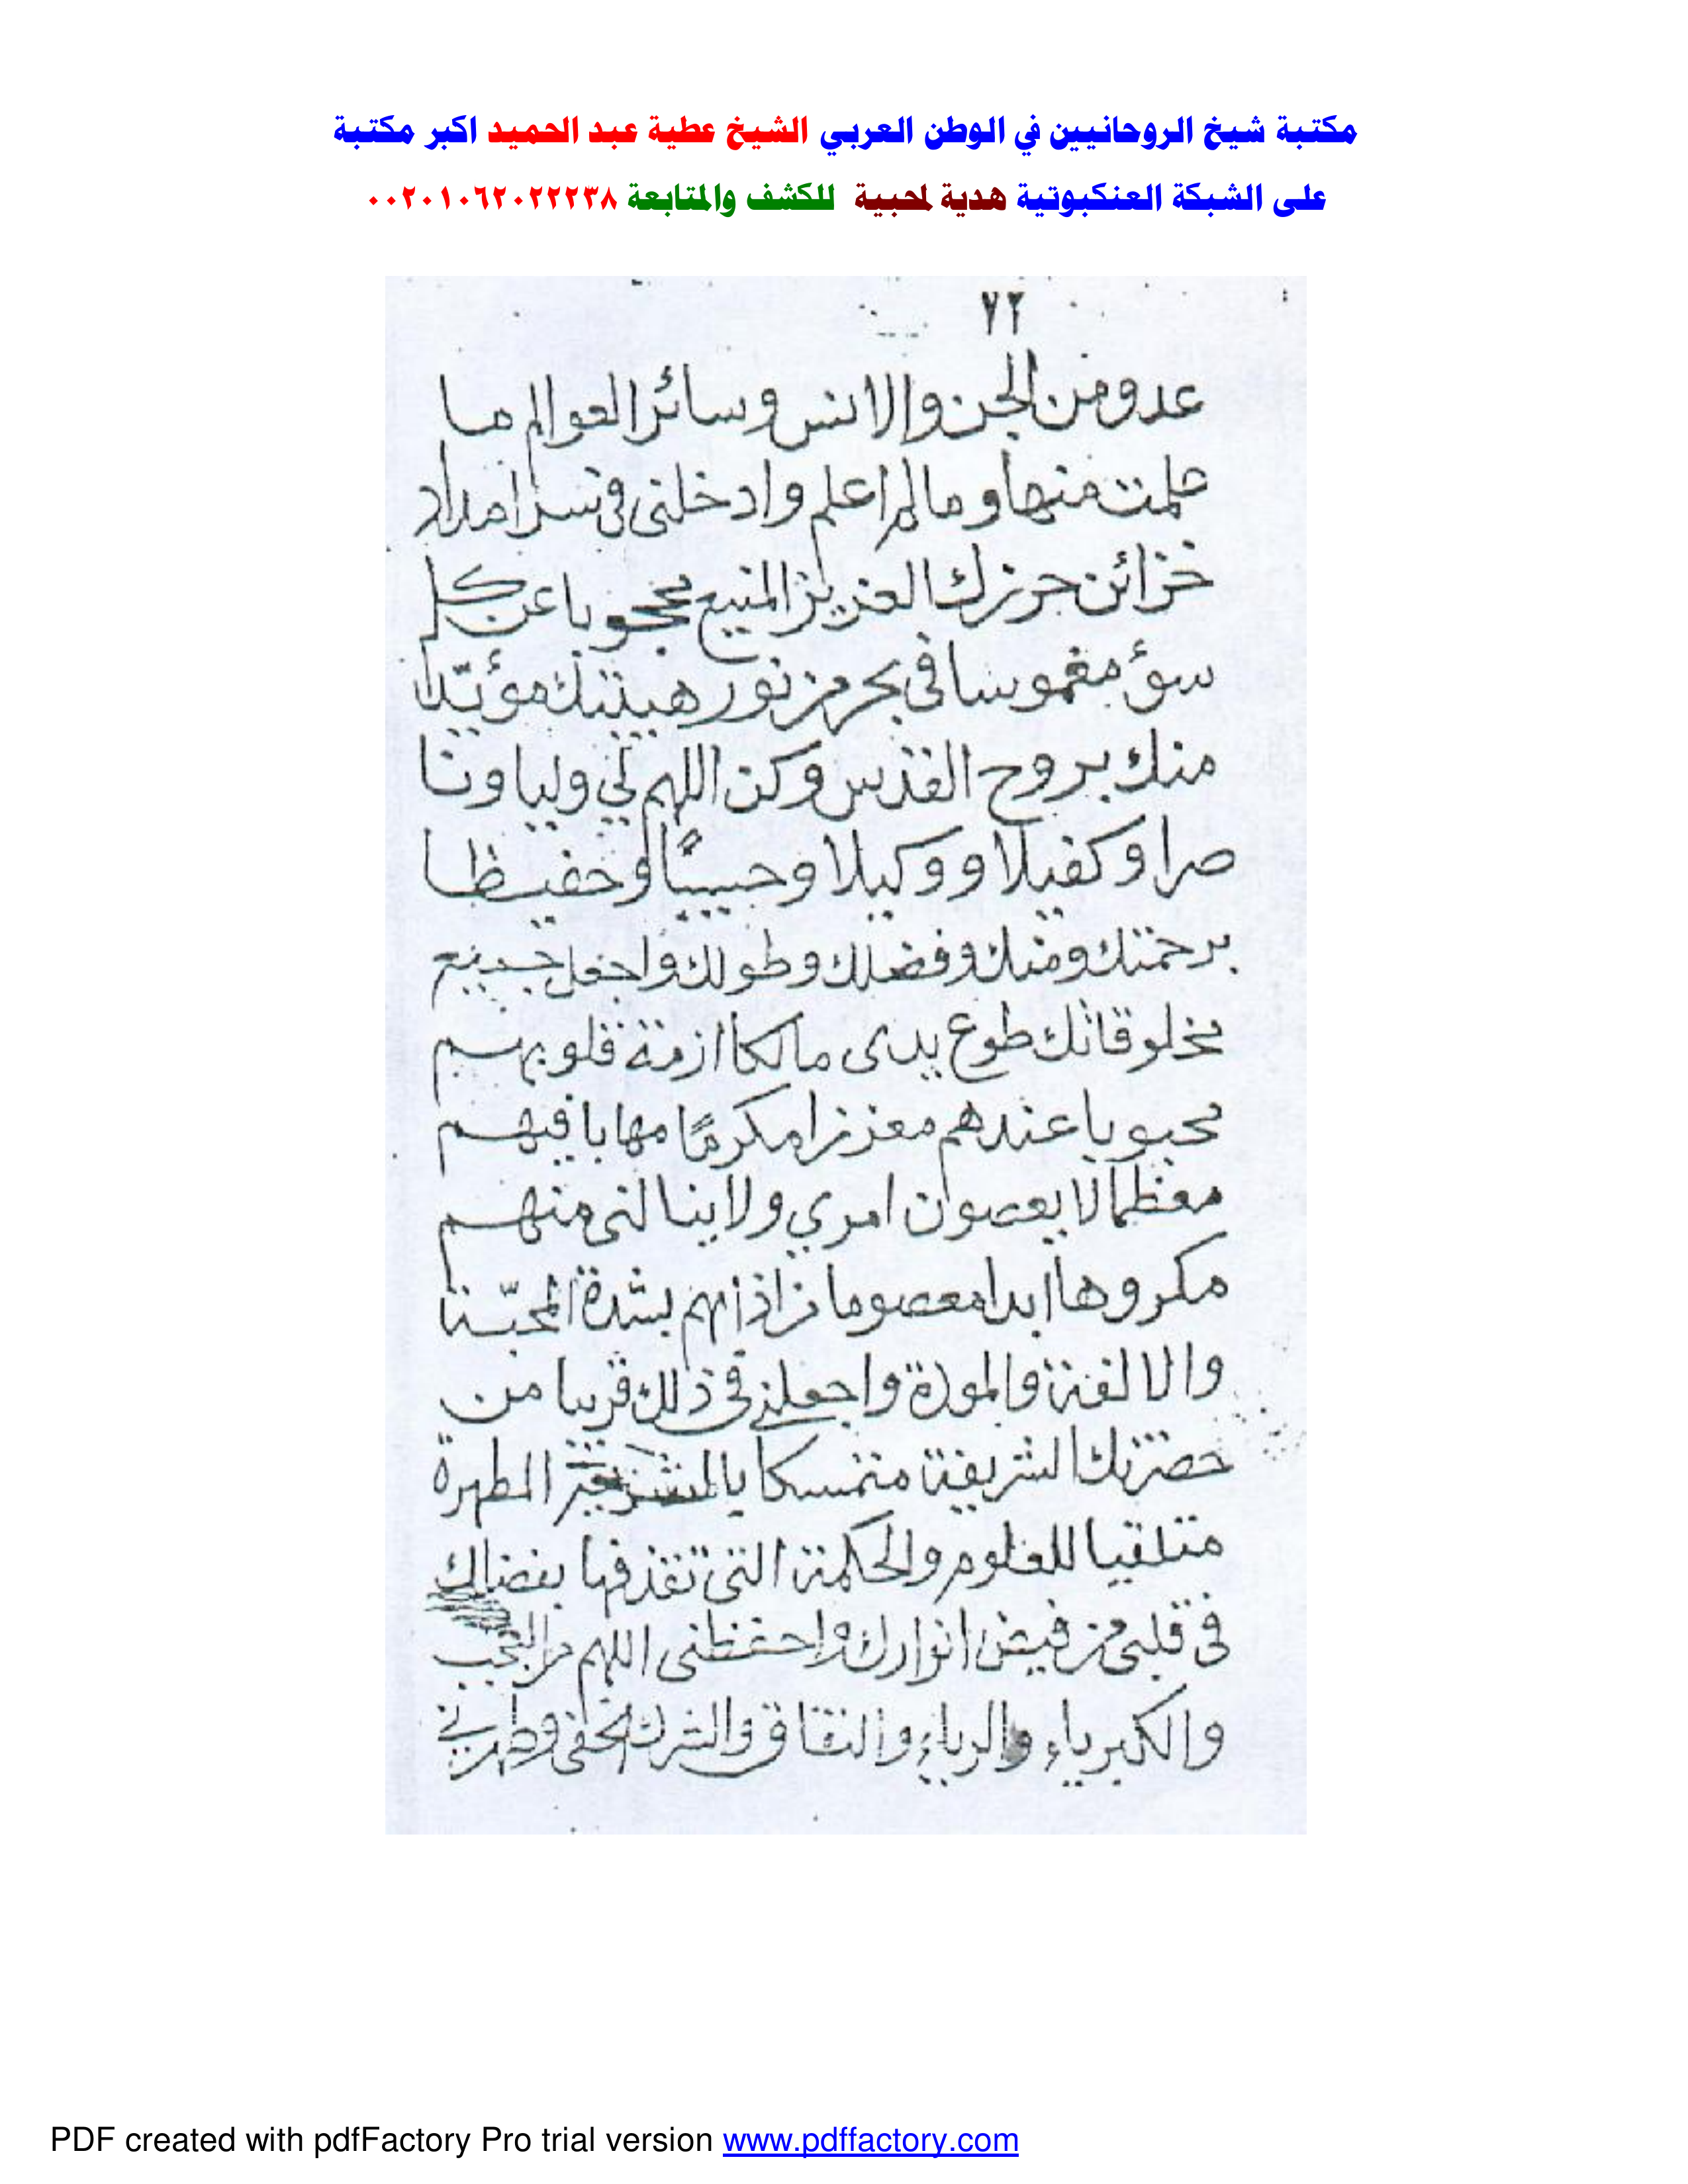 مكتبة شيخ الروحانيين في الوطن العربي الشيخ عطية عبد الحميد اكبر مكتبة
على الشبكة العنكبوتية هدية لمحبية للكشف والمتابعة ٠٠٢٠١٠٦٢٠٢٢٢٣٨
٧٢
عدو من الجن والانس وسائر العوالم ما
علمت منها وما لم اعلم وادخلنى فى سر امداد
خزائن حرزك العزيز المنيع محجوبا عن كل
سؤ مغموسا فى بحر من نور هيبتك مؤيّدا
منك بروح القدس وكن اللهم لي وليا ونا
صرا وكفيلا ووكيلا وحبيبًا وحفيظا
برحمتك ومنك وفضلك وطولك واجعل جميع
مخلوقاتك طوع يدى مالكا ازمة قلوبهم
محبوبا عندهم معززا مكرمًا مهابا فيهم
معظما لا يعصون امري ولا ينالنى منهم
مكروها ابدا معصوما من اذاهم بشدة المحبّة
والالفة والمودة واجعلنى فى ذلك قريبا من
حضرتك الشريفة متمسكا بالشريعة المطهرة
متلقيا للعلوم والحكمة التى تقذفها بفضلك
فى قلبى من فيض انوارك واحفظنى اللهم من العجب
والكبرياء والرياء والنفاق والشرك الخفى وطهرني
PDF created with pdfFactory Pro trial version www.pdffactory.com